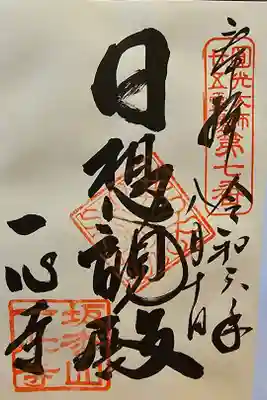 奉拝 令和六年
八月十日
圓光大師
廿五霊場
第七番
日想観殿
一心寺
坂松山
一心寺